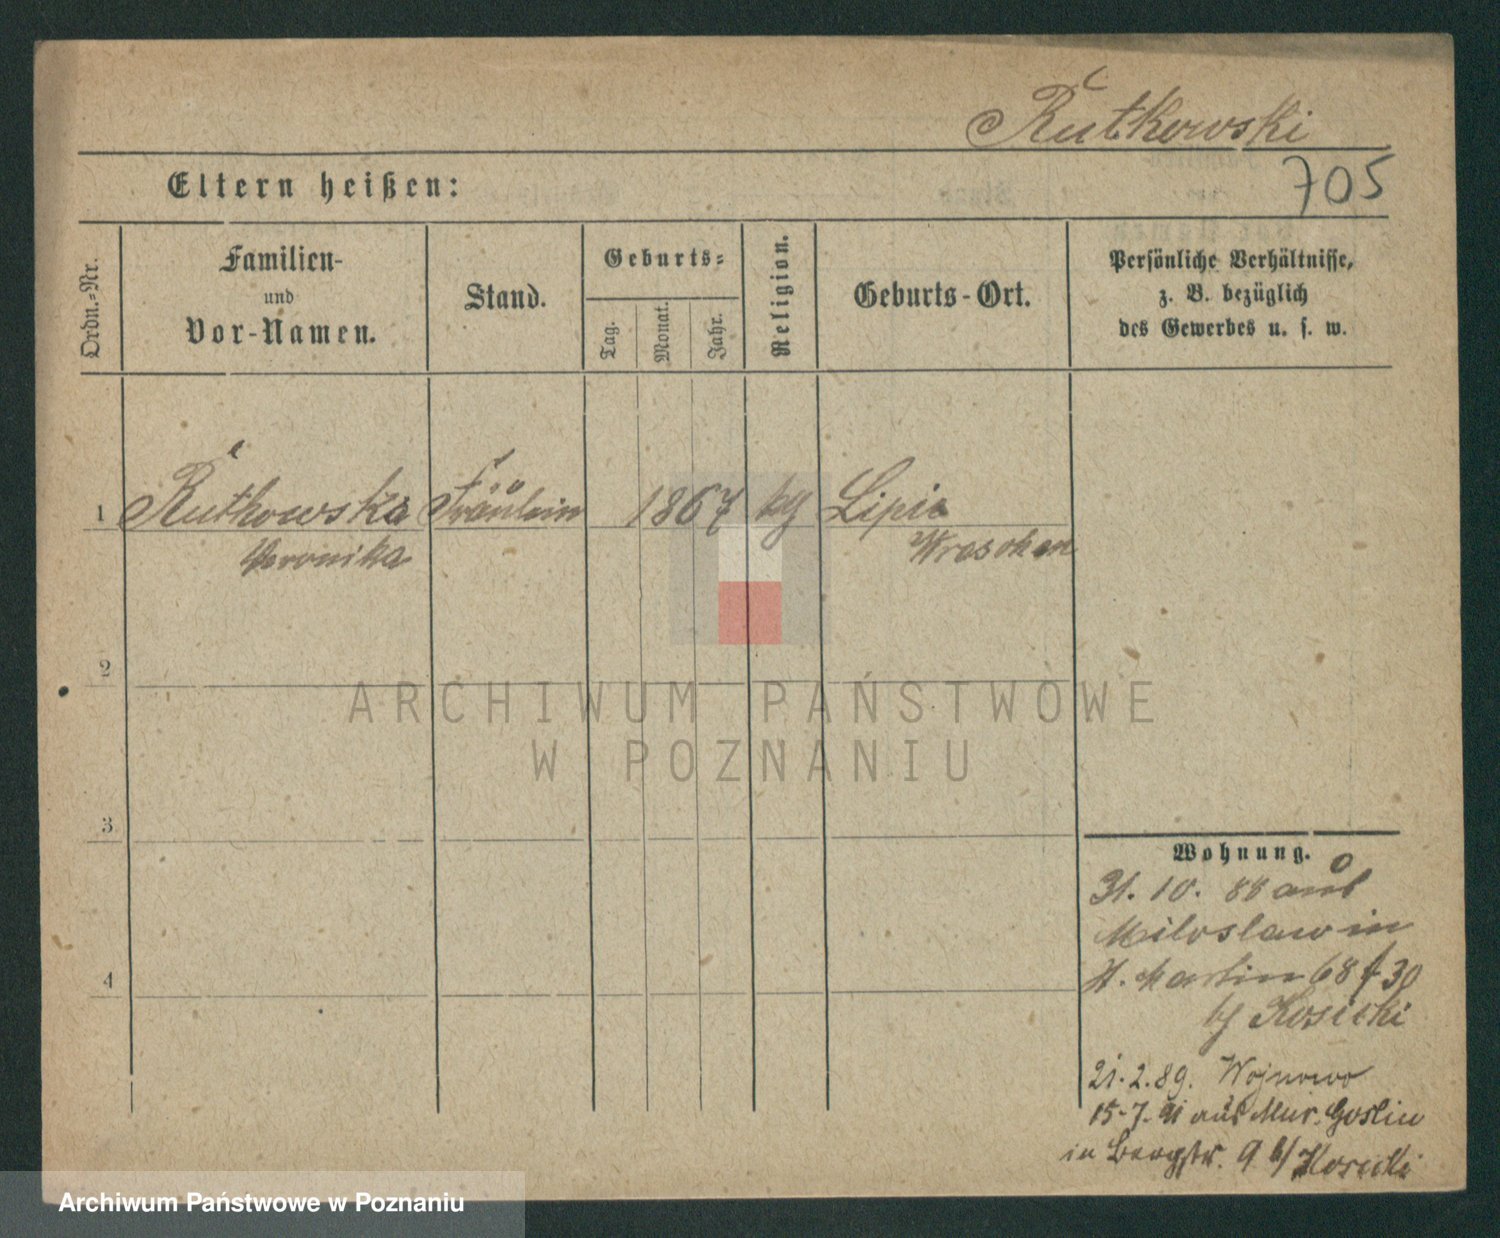 Rutkowski
Eltern heißen:
705
Ordn.-Nr.
Familien-
und
Vor-Namen.
Stand.
Geburts-
Tag.
Monat.
Jahr.
Religion.
Geburts-Ort.
Persönliche Verhältnisse,
z. B. bezüglich
des Gewerbes u. s. w.
1 Rutkowska Fräulein 1867 kg Lipie
Veronika Wreschen
2
3
4
ARCHIWUM PAŃSTWOWE
W POZNANIU
Wohnung.
31. 10. 88 aus
Miloslaw in
St. Martin 68 f 30
bj Kosicki
21. 2. 89. Wojnowo
15-7-91 aus Mur. Goslin
in Bergstr. 9 b/ Kosicki
Archiwum Państwowe w Poznaniu